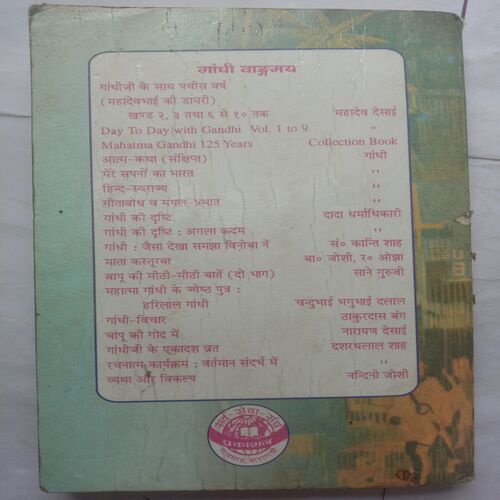 गांधी वाङ्गमय
गांधीजी के साथ पचीस वर्ष
(महादेवभाई की डायरी)
खण्ड २, ३ तथा ६ से १० तक महादेव देसाई
Day To Day with Gandhi Vol. 1 to 9 "
Mahatma Gandhi 125 Years Collection Book
आत्म-कथा (संक्षिप्त) गांधी
मेरे सपनों का भारत "
हिन्द-स्वराज्य "
गीताबोध व मंगल-प्रभात "
गांधी की दृष्टि दादा धर्माधिकारी
गांधी की दृष्टि : अगला कदम "
गांधी : जैसा देखा समझा विनोबा ने सं० कान्ति शाह
माता कस्तूरबा बा० जोशी, र० ओझा
बापू की मीठी-मीठी बातें (दो भाग) साने गुरुजी
महात्मा गांधी के ज्येष्ठ पुत्र :
हरिलाल गांधी चन्दुभाई भगुभाई दलाल
गांधी-विचार ठाकुरदास बंग
बापू की गोद में नारायण देसाई
गांधीजी के एकादश व्रत दशरथलाल शाह
रचनात्म कार्यक्रम : वर्तमान संदर्भ में "
व्यथा और विकल्प नन्दिनी जोशी
सर्व-सेवा-संघ
प्रकाशन
राजघाट वाराणसी